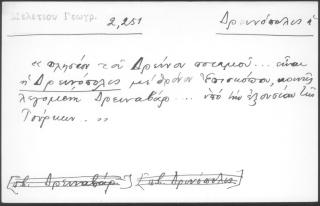 Μελετίου Γεωγρ. 2,251 Δρεινόπολις ἡ
« πλησίον τοῦ Δρείνου ποταμοῦ... εἶναι
ἡ Δρεινόπολις μὲ θρόνον Ἐπισκόπου, κοινῶς
λεγομένη Δρεναβάρ... ὑπὸ τὴν ἐξουσίαν τῶν
Τούρκων. »
[πβ. Δρεναβάρ] [πβ. Δρινόπολις]